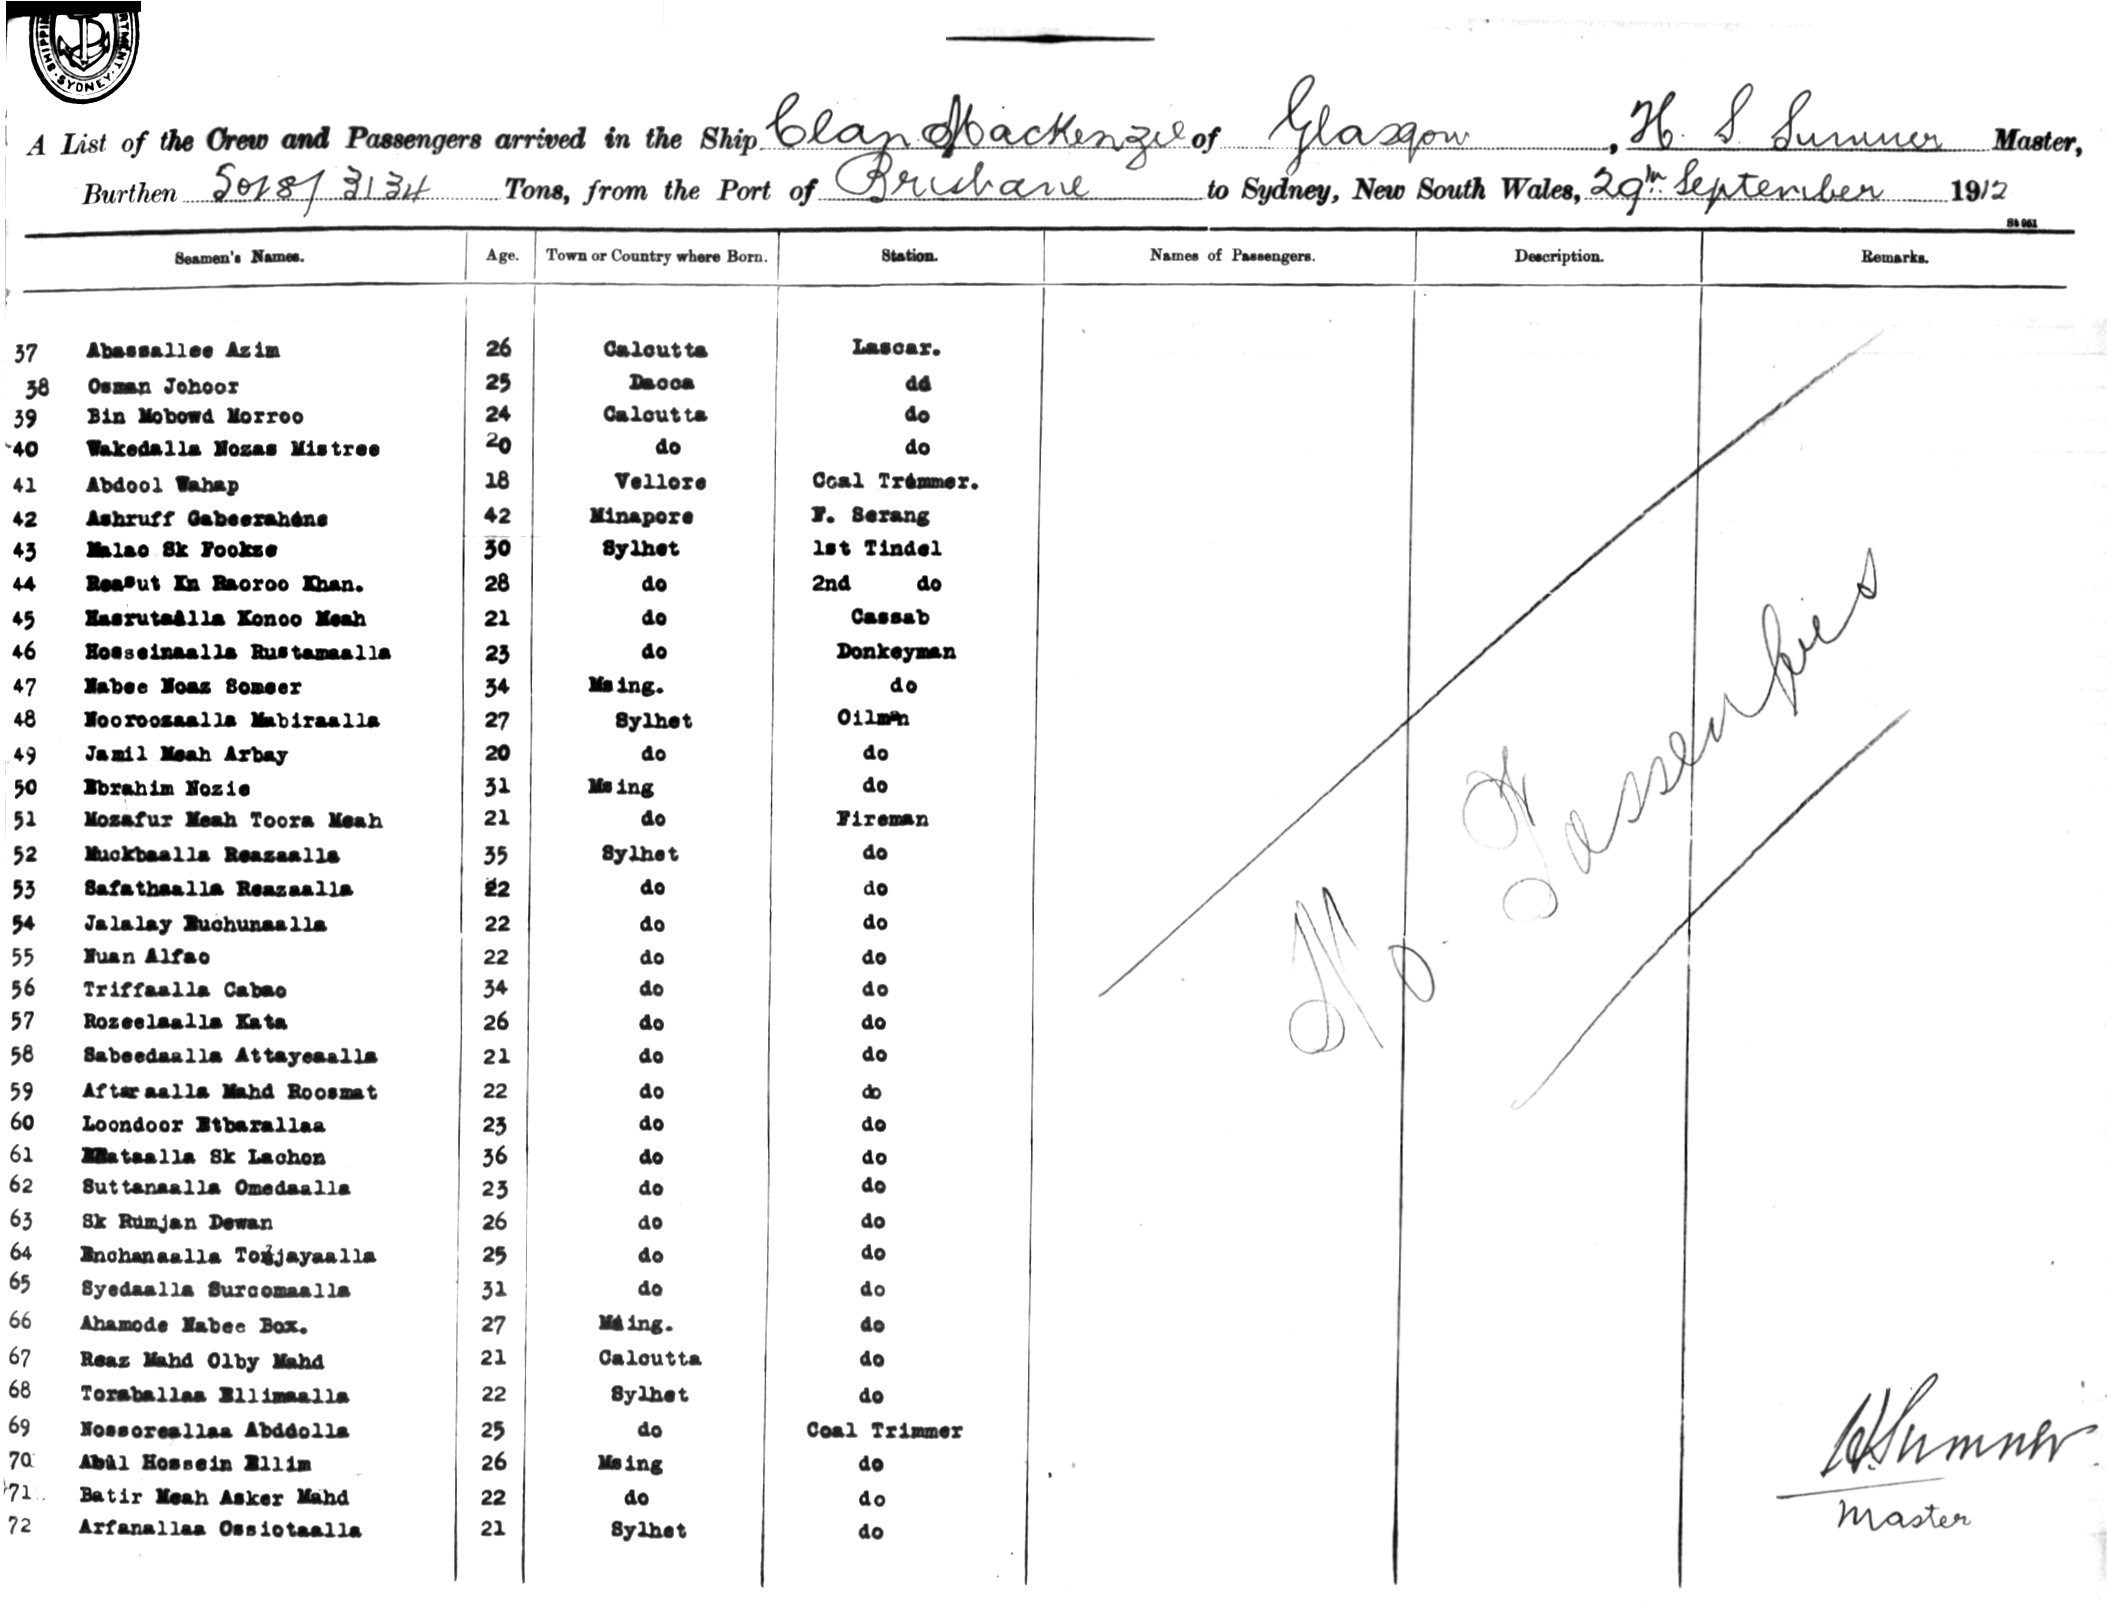 SHIPPING SYDNEY
A List of the Crew and Passengers arrived in the Ship Clan Mackenzie of Glasgow, H. S. Sumner Master,
Burthen 5018/3134 Tons, from the Port of Brisbane to Sydney, New South Wales, 29th September 1912
St 961
Seamen's Names. Age. Town or Country where Born. Station. Names of Passengers. Description. Remarks.
37 Abassallee Azim 26 Calcutta Lascar.
38 Osman Johoor 25 Dacca dd
39 Bin Mobowd Morroo 24 Calcutta do
40 Wakedalla Nozas Mistree 20 do do
41 Abdool Wahap 18 Vellore Coal Trimmer.
42 Ashruff Gabeerahene 42 Minapore F. Serang
43 Malao Sk Fookze 30 Sylhet 1st Tindel
44 Reasut Kn Raoroo Khan. 28 do 2nd do
45 Hasrutaalla Konoo Meah 21 do Cassab
46 Hosseinaalla Rustamaalla 23 do Donkeyman
47 Nabee Noaz Someer 34 Msing. do
48 Nooroozaalla Mabiraalla 27 Sylhet Oilman
49 Jamil Meah Arbay 20 do do
50 Ebrahim Nozie 31 Msing do
51 Mozafur Meah Toora Meah 21 do Fireman
52 Muckbaalla Reazaalla 35 Sylhet do
53 Safathaalla Reazaalla 22 do do
54 Jalalay Buchunaalla 22 do do
55 Nuan Alfao 22 do do
56 Triffaalla Cabao 34 do do
57 Rozeelaalla Kata 26 do do
58 Sabeedaalla Attayeaalla 21 do do
59 Aftaraalla Mahd Roosmat 22 do do
60 Loondoor Etbarallaa 23 do do
61 Sk Lachon 36 do do
62 Suttanaalla Omedaalla 23 do do
63 Sk Rumjan Dewan 26 do do
64 Enchanaalla 25 do do
65 Syedaalla Surcomaalla 31 do do
66 Ahamode Nabee Box. 27 Msing. do
67 Reaz Mahd Olby Mahd 21 Calcutta do
68 Toraballaa Ellimaalla 22 Sylhet do
69 Nossoreallaa Abddolla 25 do Coal Trimmer
70 Abul Hossein Ellim 26 Msing do
71 Batir Meah Asker Mahd 22 do do
72 Arfanallaa Ossiotaalla 21 Sylhet do
No Passengers
H. Sumner
Master